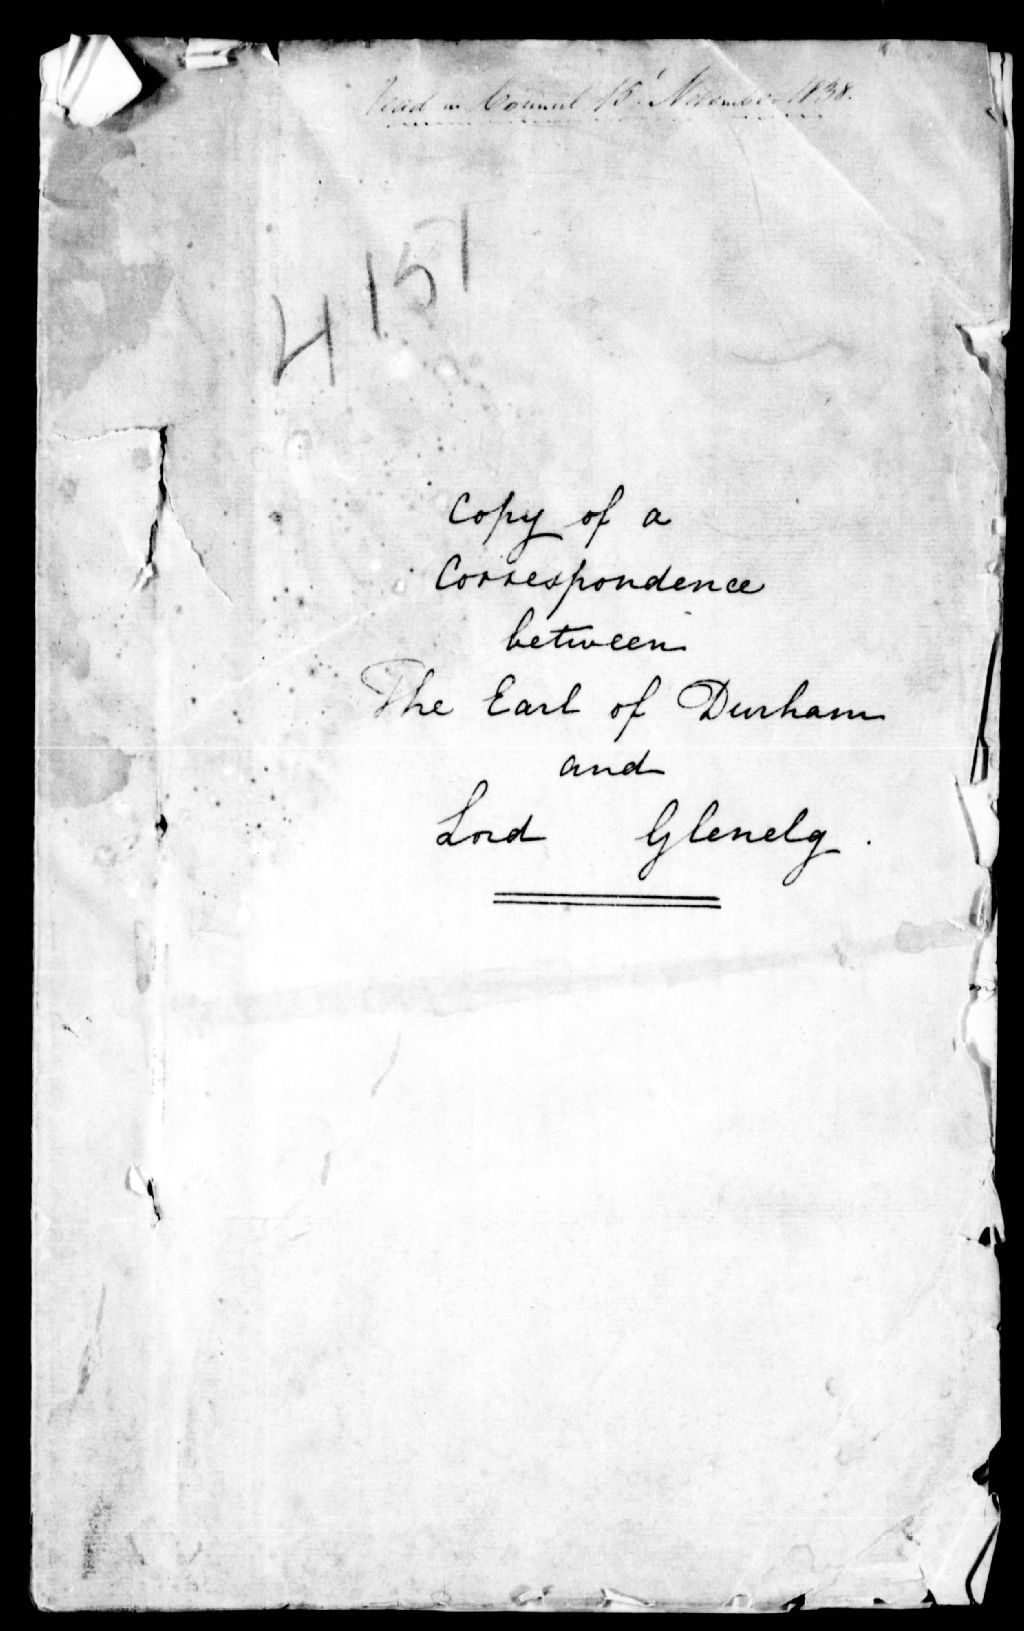 Read in Council 15' November 1838.
4151
Copy of a
Correspondence
between
The Earl of Durham
and
Lord Glenelg.